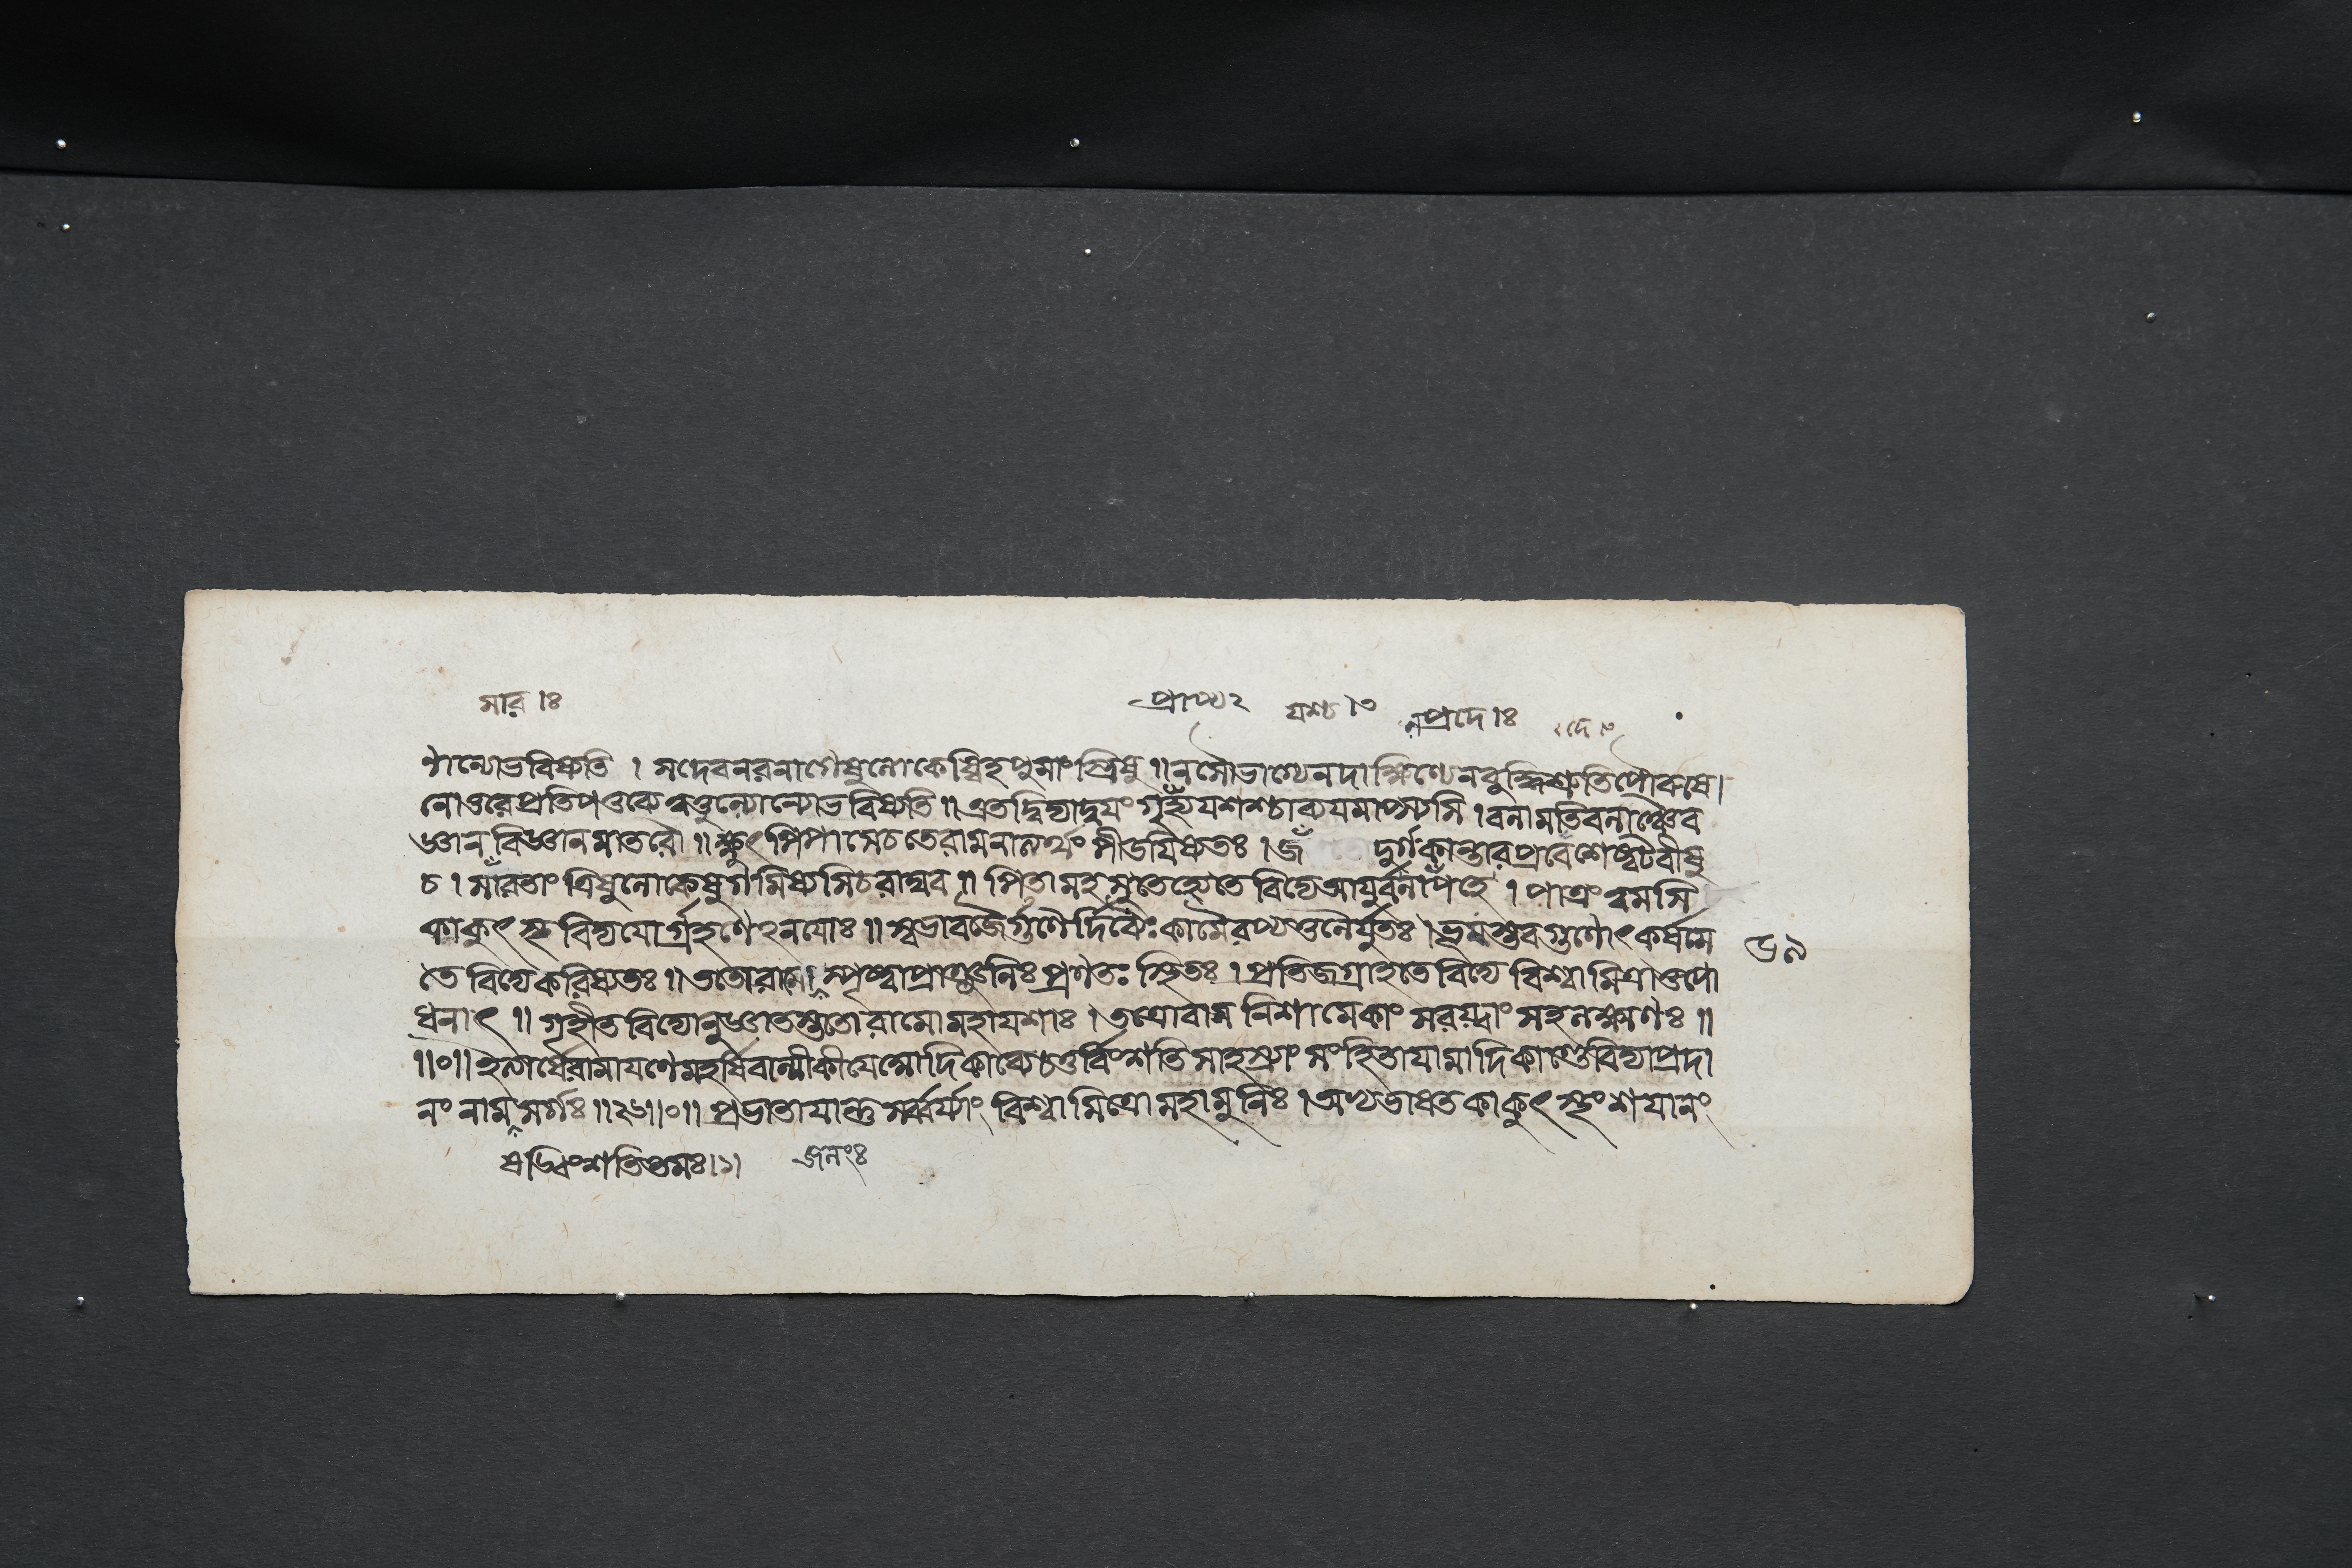 সার ।৪ প্রাপ্য২ যশ্চ ।৩ নপ্রদে।৪
ণান্যোভবিষ্যতি । সদেবনরনাগেষুলোকেষ্বিহপুমাংস্ত্রিষু ॥ নসৌভাগ্যেনদাক্ষিণ্যেনবুদ্ধিশ্রুতিপৌরুষে।
নোত্তরেপ্রতিপত্তব্যেত্বত্তুল্যোন্যোভবিষ্যতি ॥ এতদ্বিদ্যাদ্বয়ং গৃহ্যযশশ্চাব্যয়মাপ্স্যসি । বলামতিবলাঞ্চৈব
জ্ঞানবিজ্ঞানমাতরৌ ॥ ক্ষুৎপিপাসেচতেরামনাত্যর্থং পীডয়িষ্যতঃ । জ দুর্গকান্তারপ্রবেশেষ্বটবীষু
চ । সারতাং ত্রিষুলোকেষুগমিষ্যসিচরাঘব ॥ পিতামহসুতেহ্যেতেবিদ্যেআয়ুর্বলাপহে । পাত্রংত্বমসি
কাকুৎস্থবিদ্যয়োর্গ্রহণেঽনয়োঃ ॥ স্বভাবজৈর্গুণৈর্দিব্যৈঃকামৈরপ্যতুলৈর্যুতঃ । ভূয়স্তবগুণোৎকর্ষমে ৫৯
তেবিদ্যেকরিষ্যতঃ ॥ ততোরামোস্পৃষ্ট্বাপ্রাঞ্জলিঃপ্রণতঃস্থিতঃ । প্রতিজগ্রাহতেবিদ্যেবিশ্বামিত্রাত্তপো
ধনাৎ ॥ গৃহীতবিদ্যোনুজ্ঞাতস্ততোরামোমহাযশাঃ । তত্রোবাসনিশামেকাং সরয়্বাং সহলক্ষ্মণঃ ॥
॥০॥ ইত্যার্ষেরামায়ণেমহর্ষিবাল্মীকীয়েআদিকাব্যেচতুর্বিংশতিসাহস্র্যাং সংহিতায়ামাদিকাণ্ডেবিদ্যাপ্রদা
নং নামসর্গঃ ॥২৬॥০॥ প্রভাতায়ান্তুসর্ব্বর্য্যাং বিশ্বামিত্রোমহামুনিঃ । অভ্যভাষতকাকুৎস্থংশয়ানং
ষড্বিংশতিত্তমঃ।১।